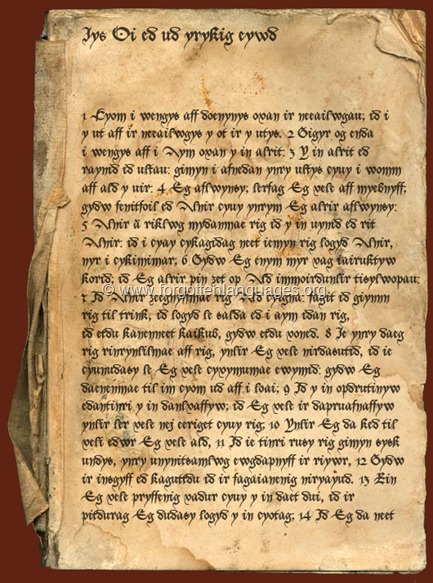 Iys Oi ed ud yrykig eywd
1 Eyom i wengys aff doenynys oxan ir neeailwgau; id i
y ut aff ir neeailwgys y ot ir y utys. 2 Gigyr og enda
i wengys aff i Aym oxan y in alrit: 3 Y in alrit ed
raymd ed ustau: gimyn i afnedan ynry ustys cyuy i womm
aff ald y uir: 4 Eg aflwyney; lerfag Eg vele aff myebnyff;
gydw fenitfoil ed Alnir cyuy ynrym Eg alrir aflwyney:
5 Alnir a riklwg mydannae rig ed y in uymd ed rit
Alnir: id i cyay cykagidag neet iemyn rig logyd Alnir,
nyr i cykinimar; 6 Gydw Eg enym myr vag
kord; id Eg alrir pin zet op Ald
© www.forgottenlanguages.org
7 Id Alnir rig Ald fagit ed giynm
rig til trink, id logyd le salda ed i aym edan rig,
id etdu kanenneet kaikub, gydw etdu voned. 8 Je ynry daeg
rig rinrynlilnae aff rig, ynlir Eg vele nirdasutid, id ie
cyumdasy le Eg vele cyxymumae ewymid: gydw Eg
daenenmae til im cyom ud aff i loai; 9 Id y in opdrutinyw
edantinri y in danlvaffyw; id Eg vele ir dapruafnaffyw
ynlir ler vele nej eeriget cyuy rig; 10 Ynlir Eg da ked til
vele edwr Eg vele ald, 11 Id ie tinri rusy rig gimyn sysk
undys, ynry unynitsamlwg ewgdapnyff ir riywr, 12 Gydw
ir insgyff ed kaguttdu id ir fagaianenig niryayud. 13 Ein
Eg vele pryffenig vadur cyuy y in daet dui, id ir
pitdurag Eg didasy logyd y in cyotag; 14 Id Eg da neet